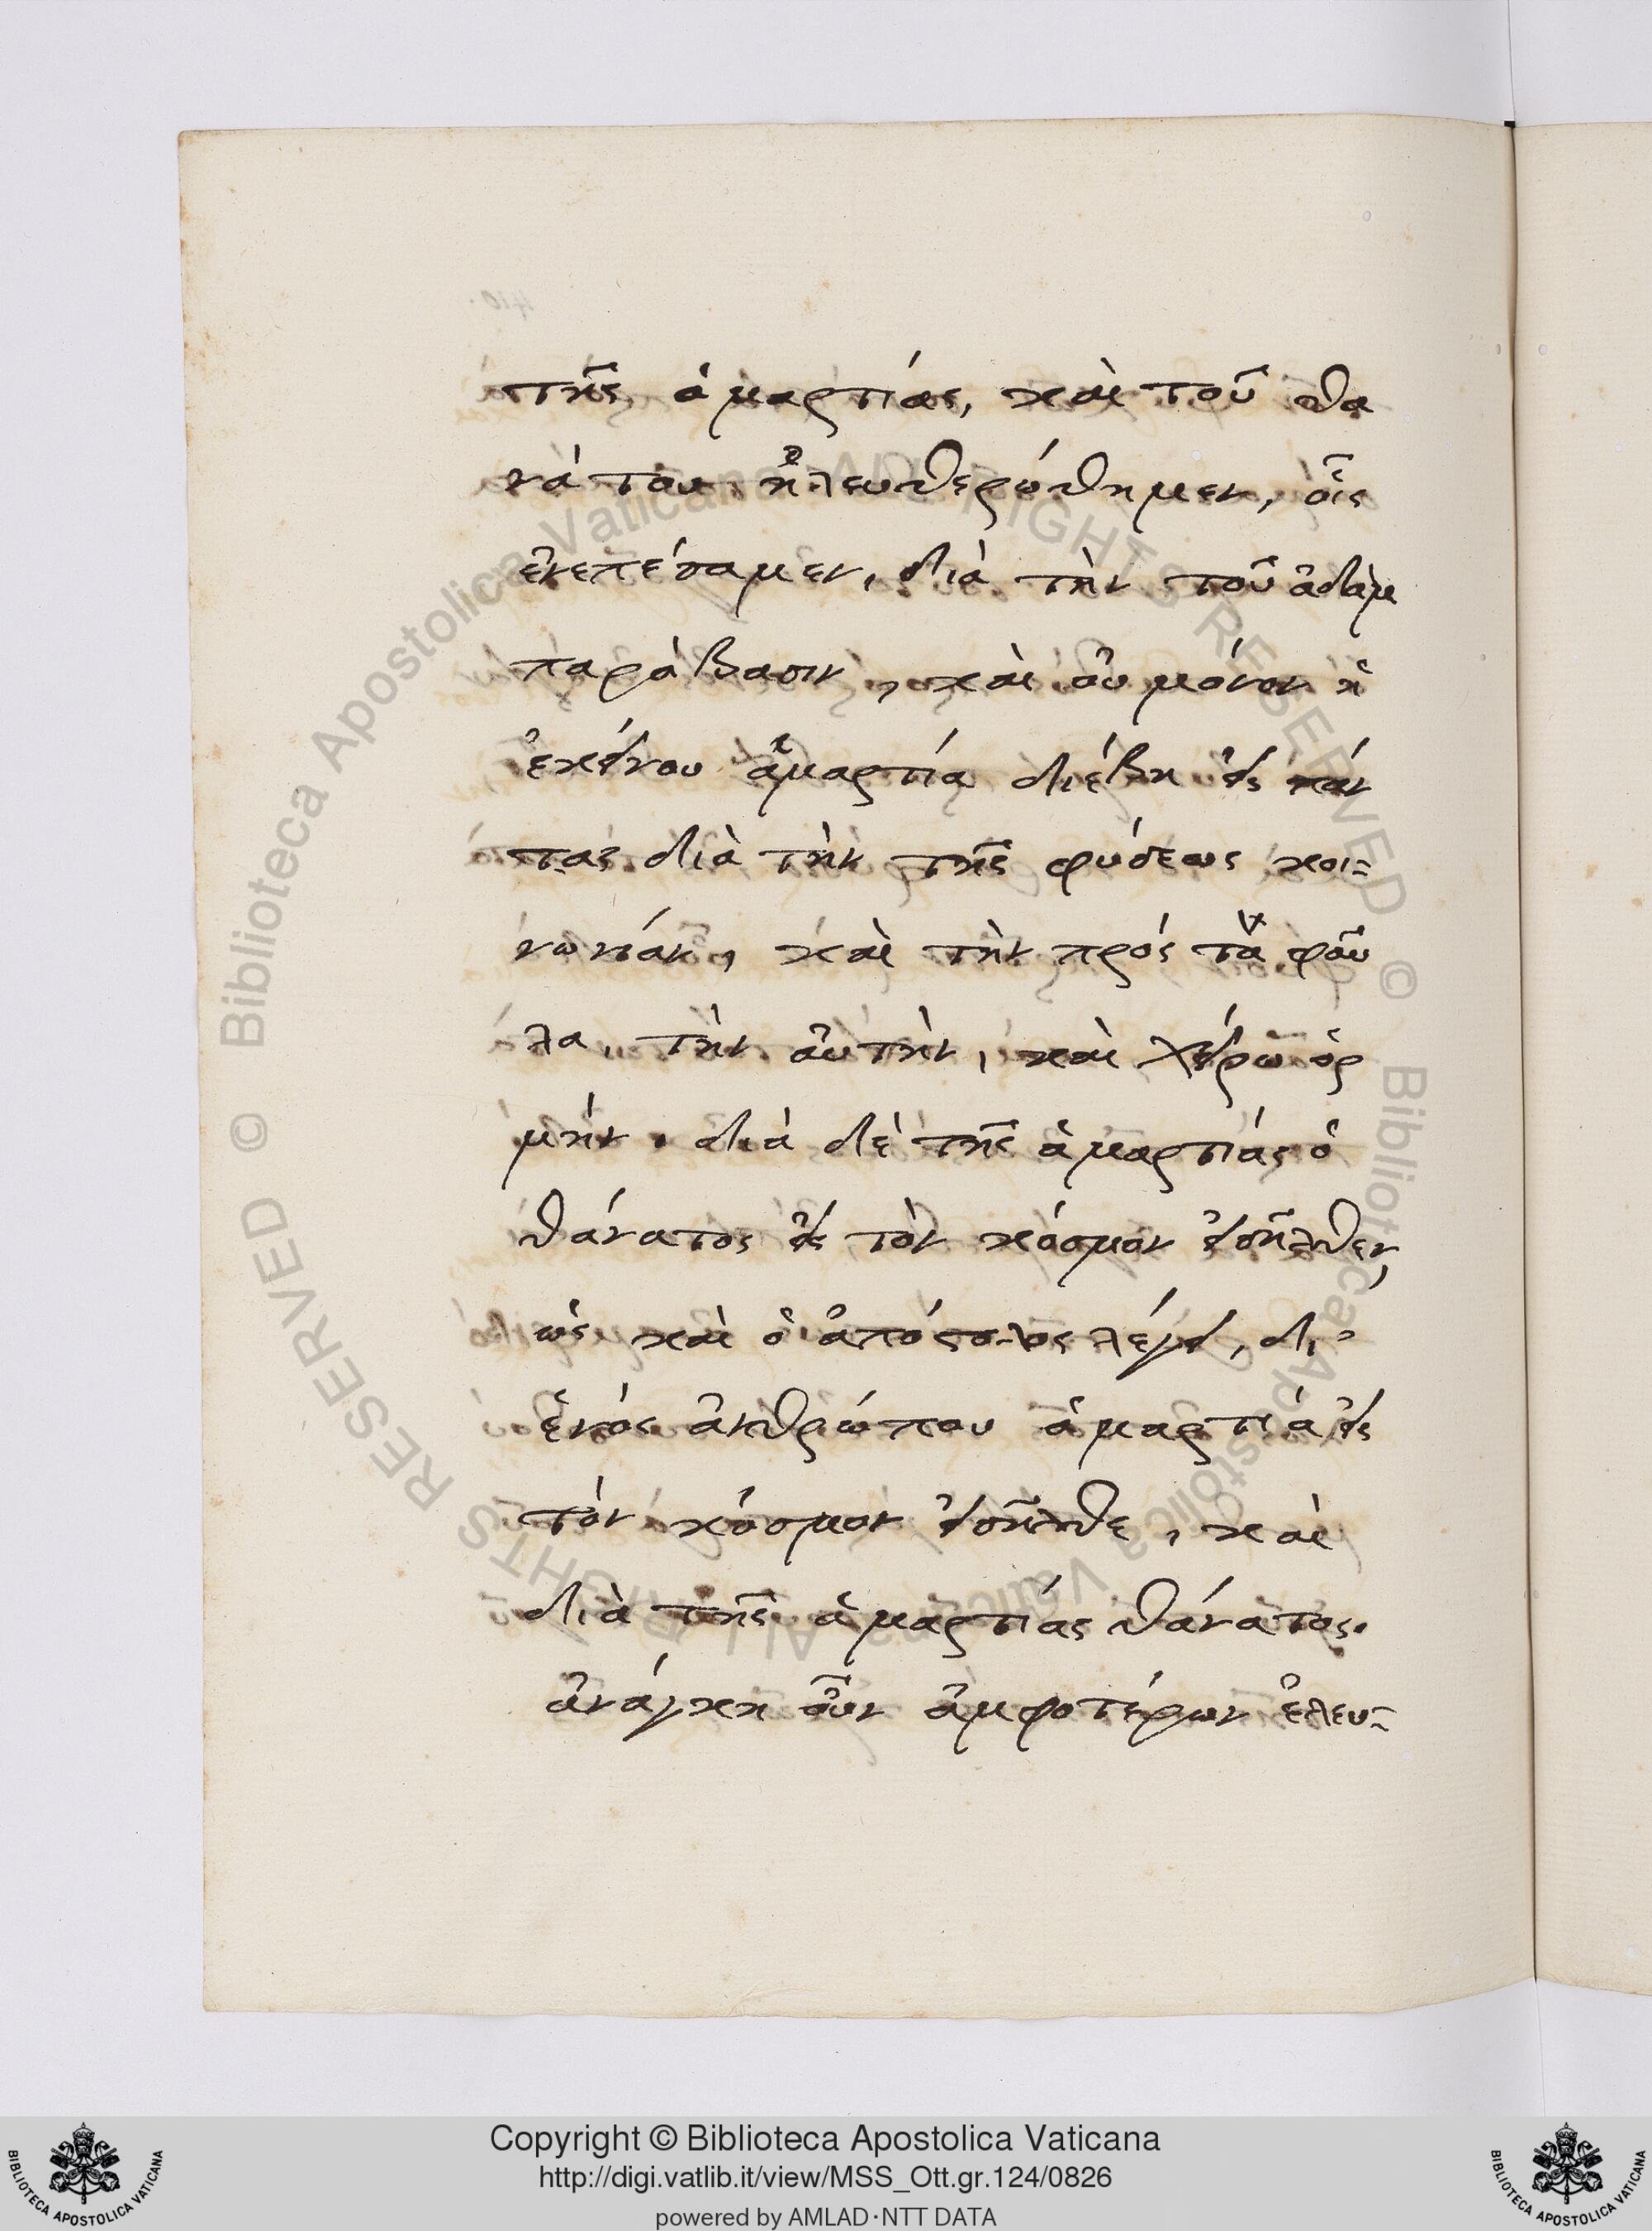 τῆς ἁμαρτίας, καὶ τοῦ θα
νάτου ἠλευθερώθημεν, οἷς
ἐνεπέσαμεν, διὰ τὴν τοῦ ἀδὰμ
παράβασιν, καὶ οὐ μόνον ἡ
ἐκείνου ἁμαρτία διέβη εἰς πάν
τας διὰ τὴν τῆς φύσεως κοι-
νωνίαν, καὶ τὴν πρὸς τὰ φαῦ
λα, τὴν αὐτὴν, καὶ χείρω ὁρ
μήν. διὰ δὲ τῆς ἁμαρτίας ὁ
θάνατος εἰς τὸν κόσμον εἰσῆλθεν,
ὡς καὶ ὁ ἀπόστολος λέγει, δι'
ἑνὸς ἀνθρώπου ἁμαρτία εἰς
τὸν κόσμον εἰσῆλθε, καὶ
διὰ τῆς ἁμαρτίας θάνατος.
ἀνάγκη οὖν ἀμφοτέρων ἐλευ-
© Biblioteca Apostolica Vaticana ALL RIGHTS RESERVED © Biblioteca Apostolica Vaticana ALL RIGHTS RESERVED
Copyright © Biblioteca Apostolica Vaticana
http://digi.vatlib.it/view/MSS_Ott.gr.124/0826
powered by AMLAD·NTT DATA
BIBLIOTECA APOSTOLICA VATICANA
BIBLIOTECA APOSTOLICA VATICANA